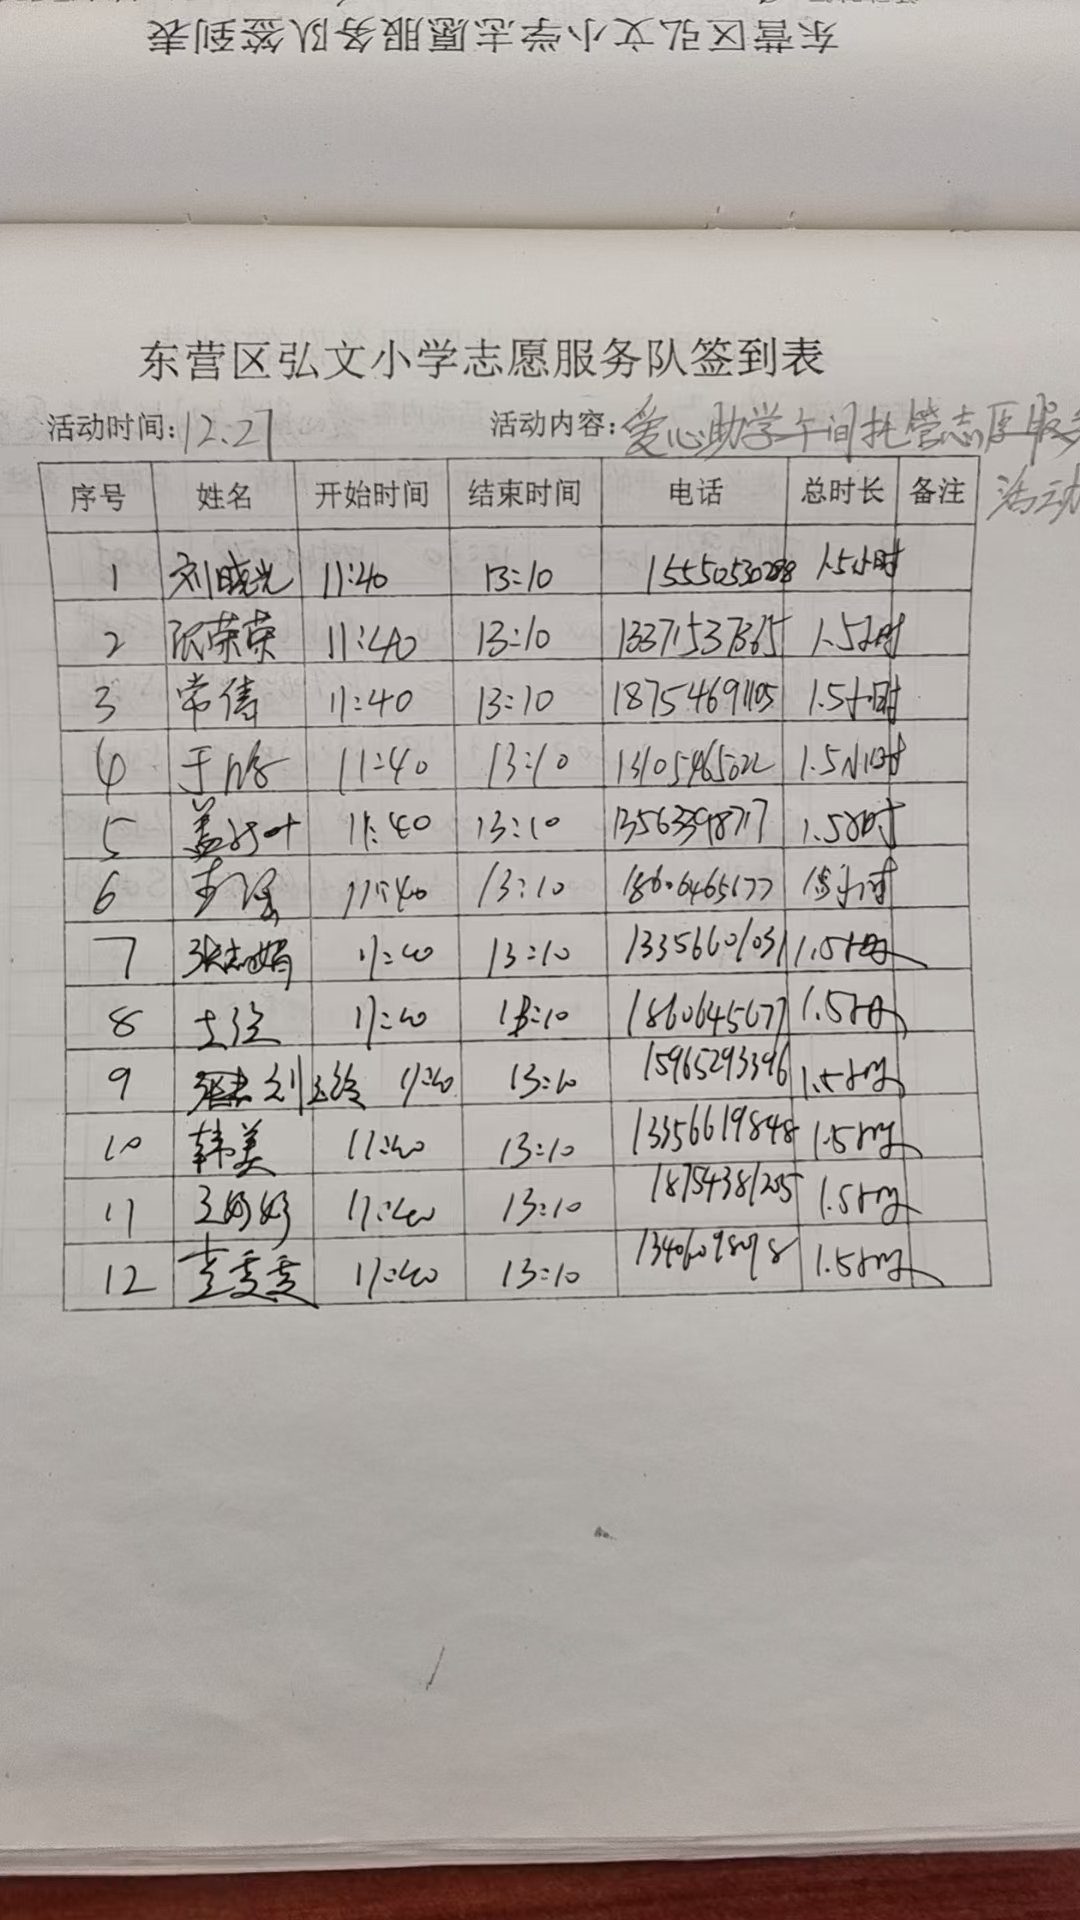 东营区弘文小学志愿服务队签到表
东营区弘文小学志愿服务队签到表
活动时间：12.21 活动内容：爱心助学午间托管志愿服务
活动
序号 姓名 开始时间 结束时间 电话 总时长 备注
1 刘晓光 11:40 13:10 15550530288 1.5小时
2 张荣荣 11:40 13:10 13371537365 1.5小时
3 常倩 11:40 13:10 18754691105 1.5小时
4 于 11:40 13:10 13105465022 1.5小时
5 盖 叶 11:40 13:10 13563398717 1.5小时
6 李瑶 11:40 13:10 18606465177 1.5小时
7 张志娟 11:40 13:10 13356601031 1.5小时
8 11:40 13:10 1860645677 1.5小时
9 刘玉玲 11:40 13:10 15965293396 1.5小时
10 韩美 11:40 13:10 13356619848 1.5小时
11 王好好 11:40 13:10 18754381205 1.5小时
12 雯雯 11:40 13:10 1.5小时